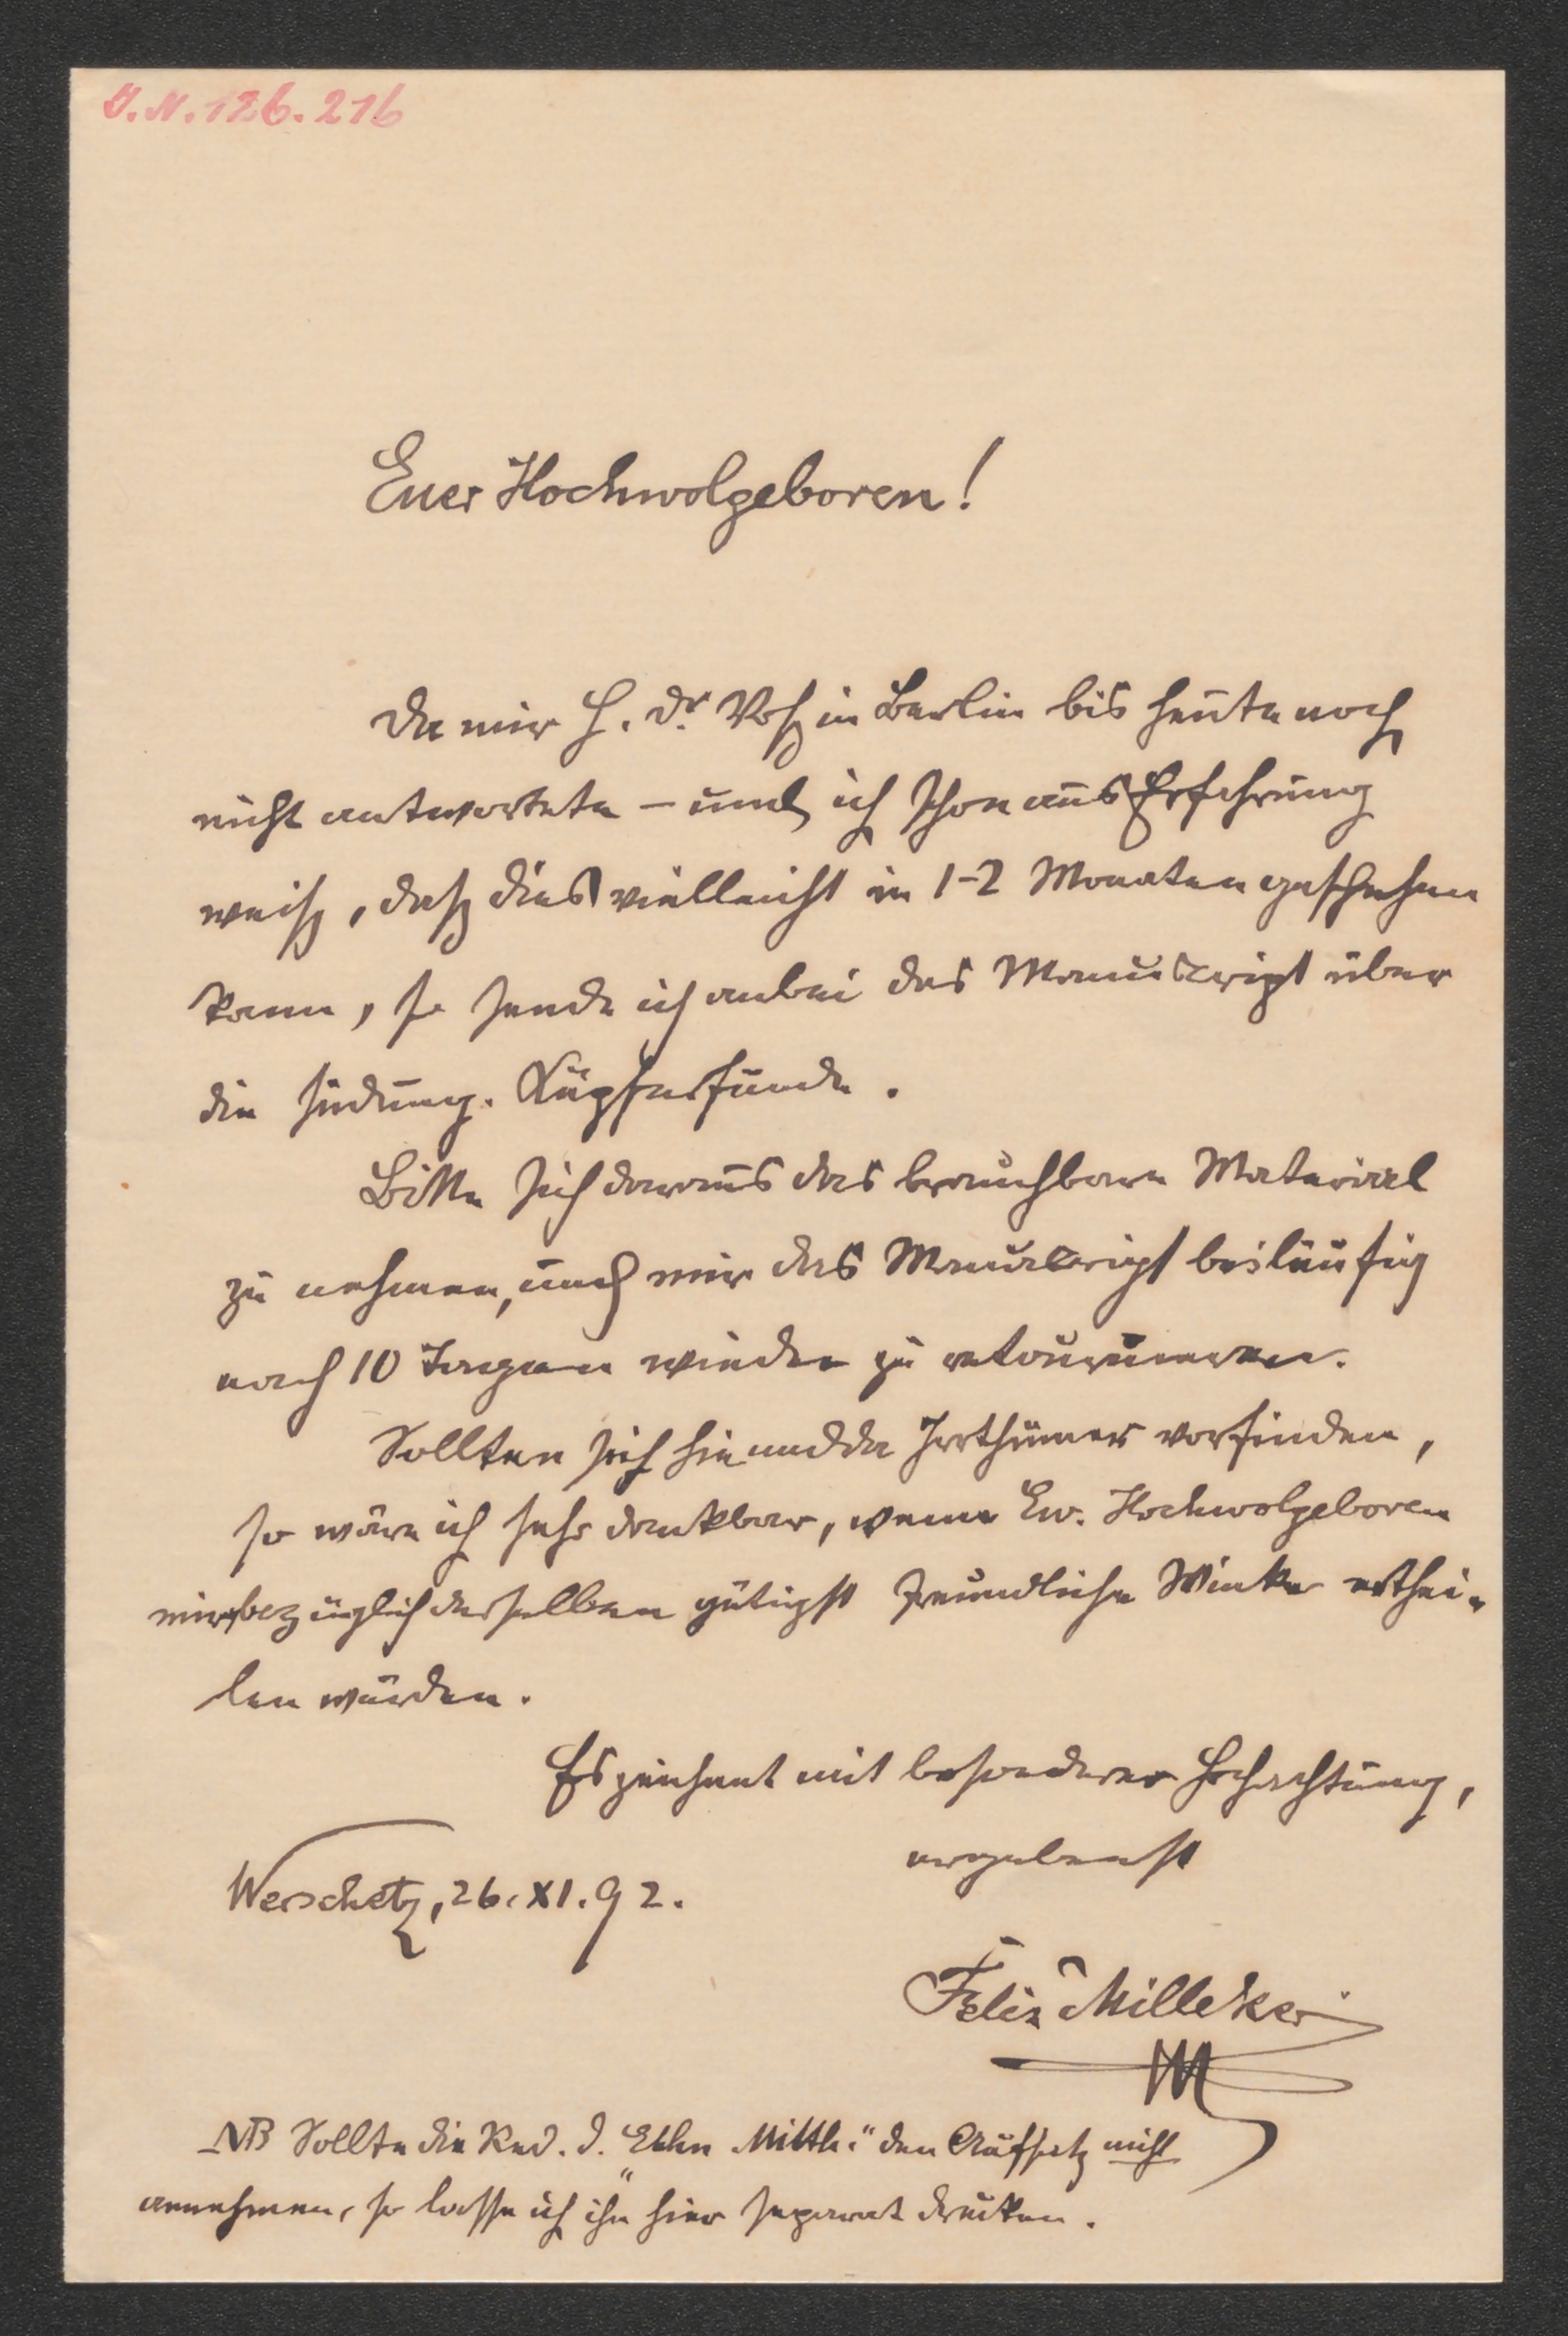 J.N. 126.216
Euer Hochwolgeboren!
Da mir H. Dr. Voß in Berlin bis heute noch
nicht antwortete – und ich schon aus Erfahrung
weiß, daß dies vielleicht in 1-2 Monaten geschehen
kann, so sende ich anbei das Manuscript über
die südung. Kupferfunde.
Bitte sich daraus das brauchbare Material
zu nehmen, und mir das Manuscript beiläufig
nach 10 Tagen wieder zu
Sollten sich hie und da Irrthümer vorfinden,
so wäre ich sehr dankbar, wenn Ew. Hochwolgeboren
mir bezüglich derselben gütigst freundliche Winke erthei-
len würden.
Es zeichnet mit besonderer Hochachtung,
ergebenst
Werschetz, 26. XI. 92.
Felix Milleker
NB Sollte die Red. d. "Ethn Mitth." den Aufsatz nicht
annehmen, so lasse ich ihn hier separat drucken.